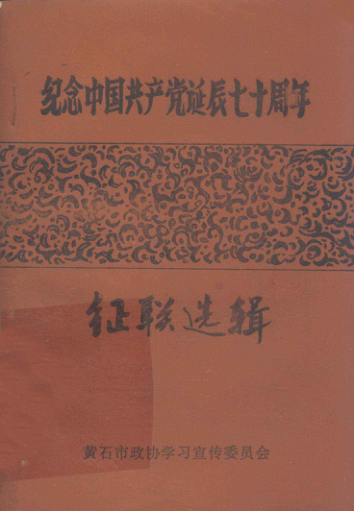 纪念中国共产党诞辰七十周年
征联选辑
黄石市政协学习宣传委员会